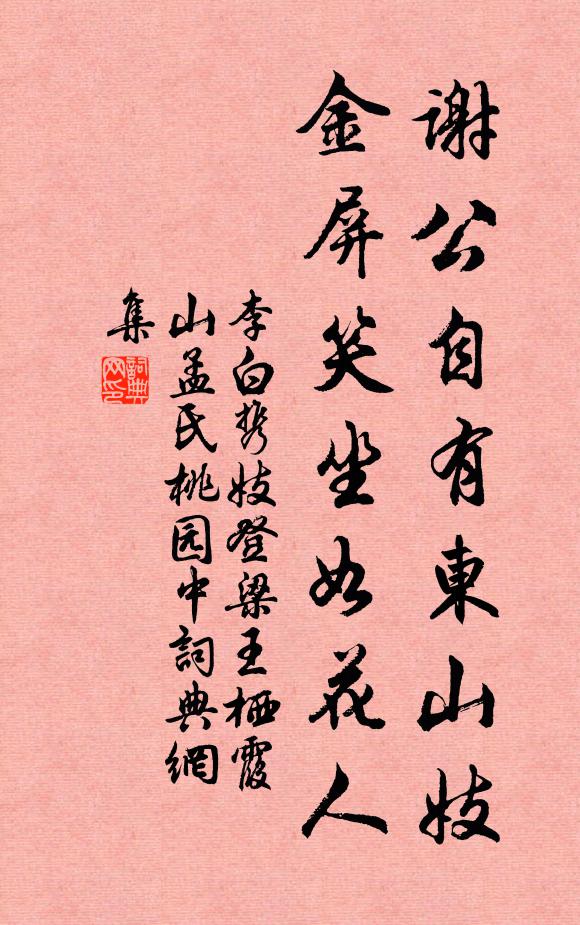 謝公自有東山妓
金屏笑坐如花人
李白携妓登梁王栖霞
山孟氏桃园中詞典網
集
詞典
网印